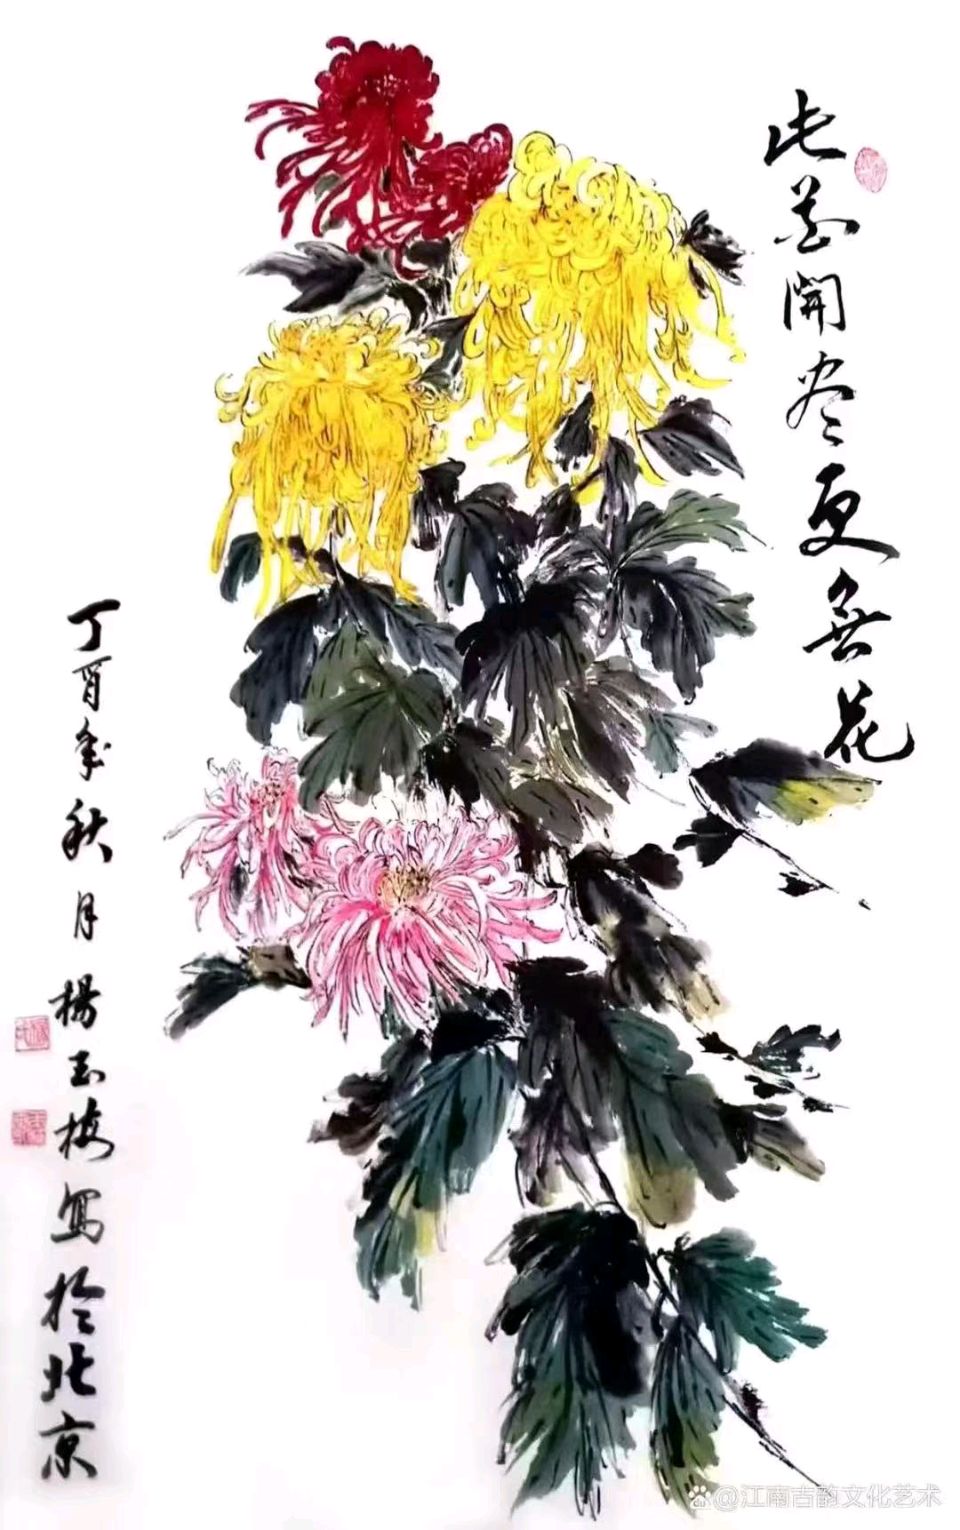 此花開尽更無花
丁酉年秋月楊玉梅寫於北京
@江南古韵文化艺术